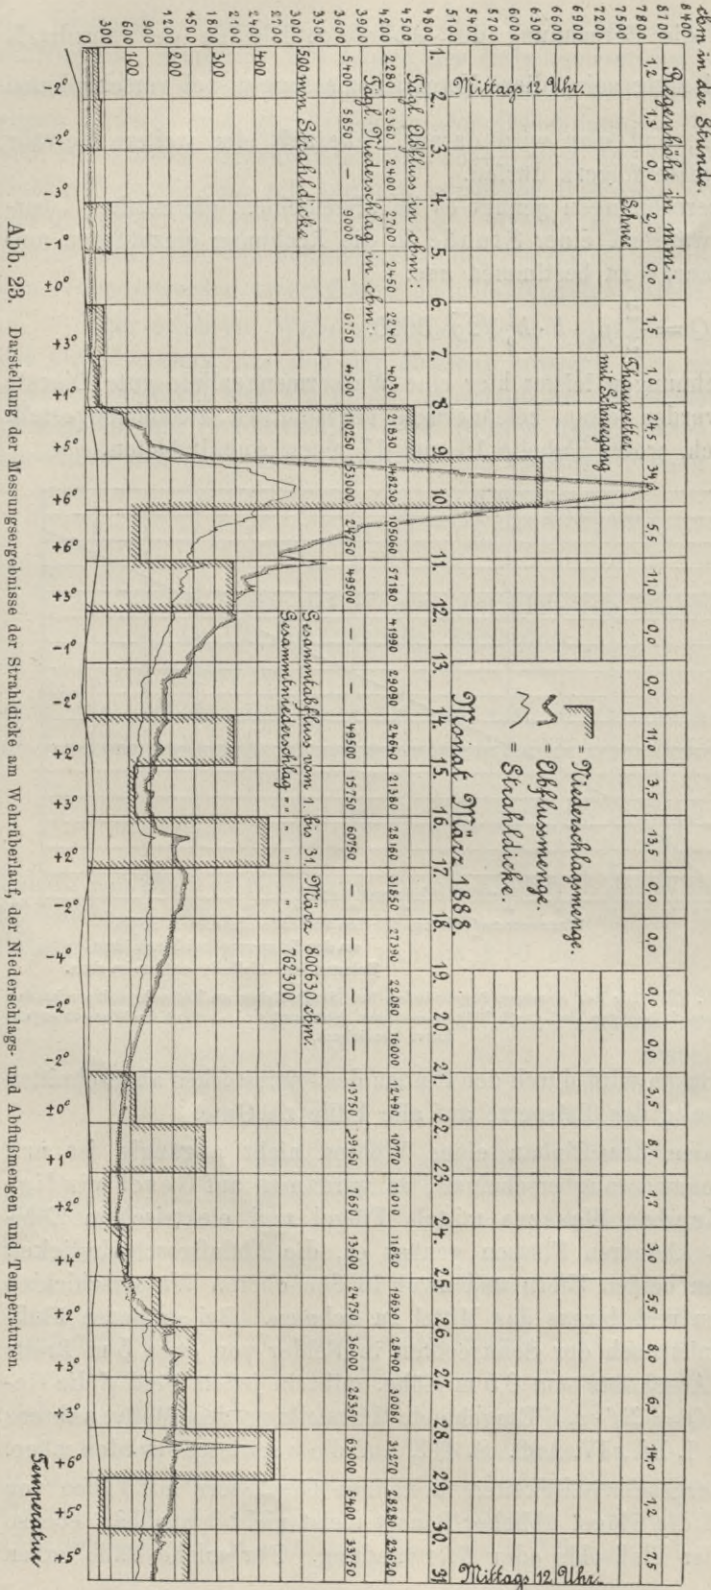 cbm in der Stunde.
8400
8100
7800
7500
7200
6900
6600
6300
6000
5700
5400
5100
4800
4500
4200
3900
3600
3300
3000
2700
2400
2100
1800
1500
1200
900
600
300
0
500 mm Strahldicke
400
300
200
100
Regenhöhe in mm:
1,2 1,3 0,0 2,0 0,0 1,5 1,0 24,5 34,0 5,5 11,0 0,0 0,0 11,0 3,5 13,5 0,0 0,0 0,0 0,0 3,5 8,7 1,7 3,0 5,5 8,0 6,3 14,0 1,2 7,5
Schnee
Thauwetter
mit Schneegang
= Niederschlagsmenge.
= Abflussmenge.
= Strahldicke.
Monat März 1888.
Mittags 12 Uhr.
Mittags 12 Uhr.
1. 2. 3. 4. 5. 6. 7. 8. 9. 10. 11. 12. 13. 14. 15. 16. 17. 18. 19. 20. 21. 22. 23. 24. 25. 26. 27. 28. 29. 30. 31.
Tägl. Abfluss in cbm:
2280 2360 2400 2700 2450 2240 4030 21830 148230 105060 57180 41990 29090 24640 21380 28160 31850 27390 22080 16000 12490 10770 11010 11620 19630 28400 30080 31270 28280 23620
Tägl. Niederschlag in cbm:
5400 5850 — 9000 — 6750 4500 110250 153000 24750 49500 — — 49500 15750 60750 — — — — 13750 39150 7650 13500 24750 36000 28350 63000 5400 33750
Gesammtabfluss vom 1. bis 31. März 800630 cbm.
Gesammtniederschlag " " " " 762300
-2° -2° -3° -1° ±0° +3° +1° +5° +6° +6° +3° -1° -2° +2° +3° +2° -2° -4° -2° -2° ±0° +1° +2° +4° +2° +3° +3° +6° +5° +5°
Temperatur
Abb. 23. Darstellung der Messungsergebnisse der Strahldicke am Wehrüberlauf, der Niederschlags- und Abflußmengen und Temperaturen.